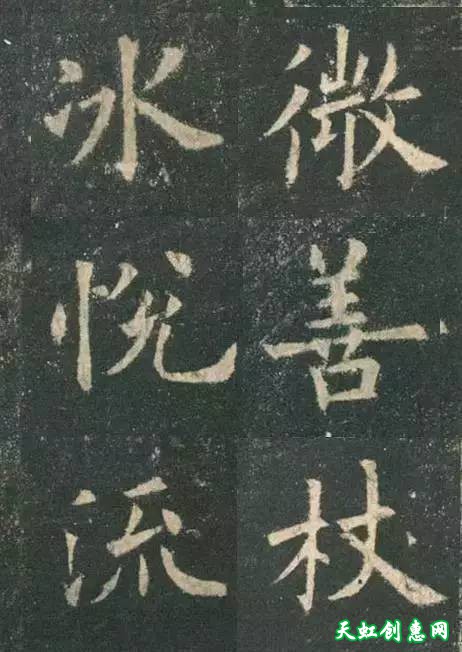 微善杖
冰悦流
天虹创惠网